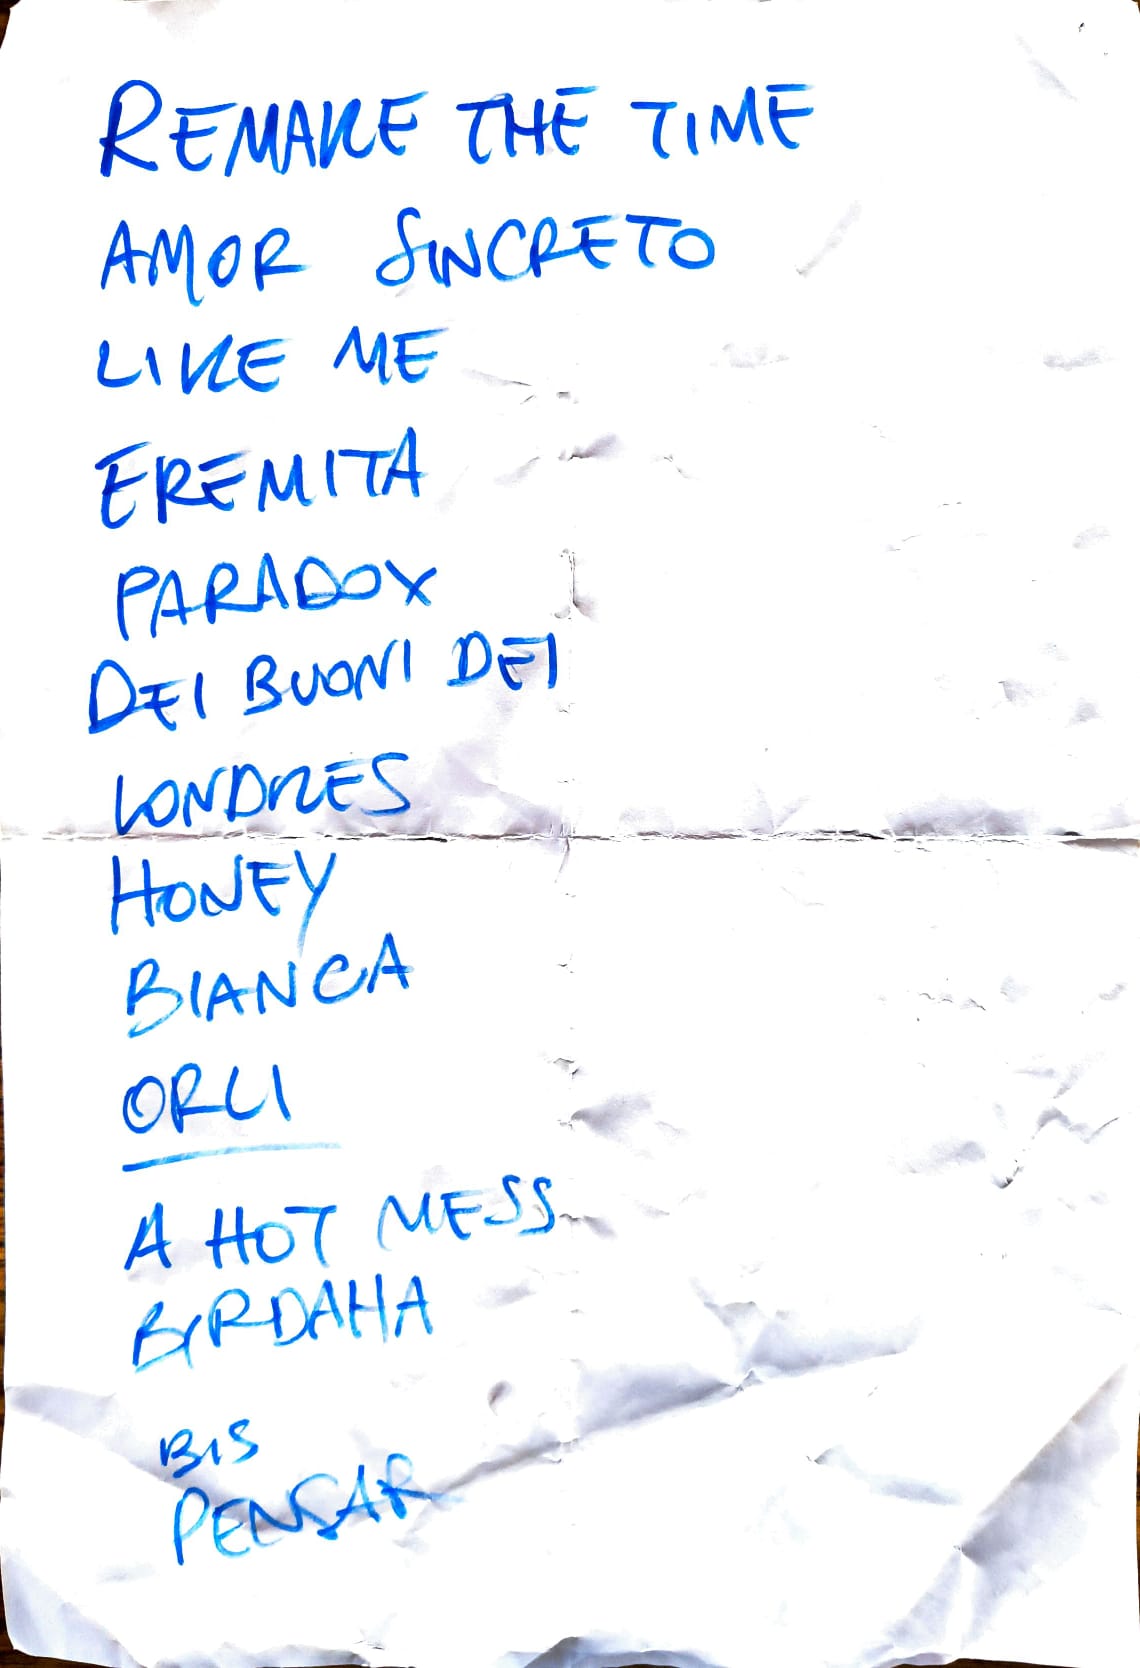 REMAKE THE TIME
AMOR SINCRETO
LIKE ME
EREMITA
PARADOX
DEI BUONI DEI
LONDRES
HONEY
BIANCA
ORLI
A HOT MESS
BIRDAHA
BIS
PENSAR